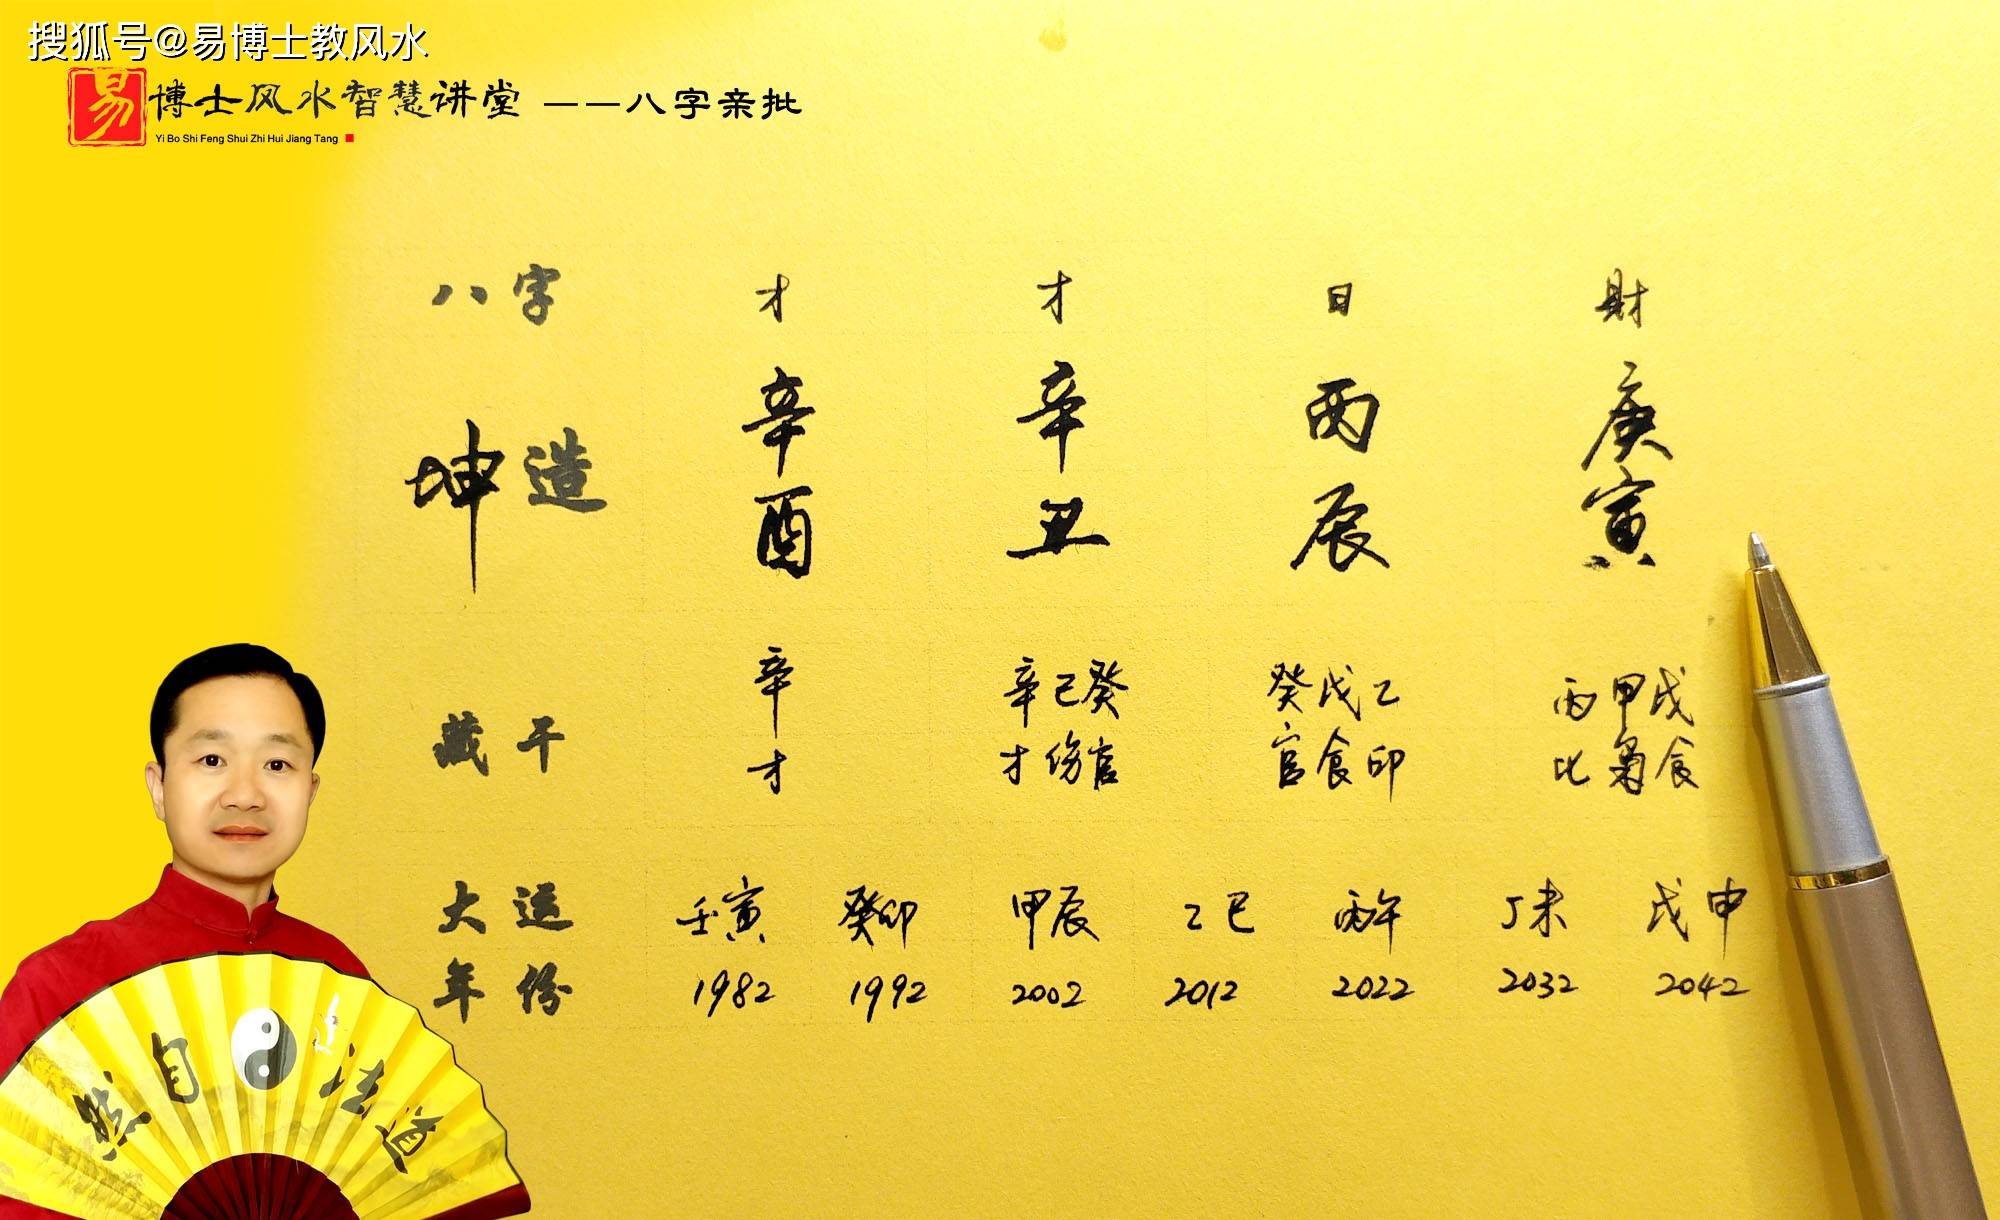 搜狐号@易博士教风水
易 博士风水智慧讲堂 ——八字亲批
Yi Bo Shi Feng Shui Zhi Hui Jiang Tang
八字 才 才 日 財
坤造 辛酉 辛丑 丙辰 庚寅
藏干 辛 辛己癸 癸戊乙 丙甲戊
才 才伤官 官食印 比枭食
大运 壬寅 癸卯 甲辰 乙巳 丙午 丁未 戊申
年份 1982 1992 2002 2012 2022 2032 2042
然自法道